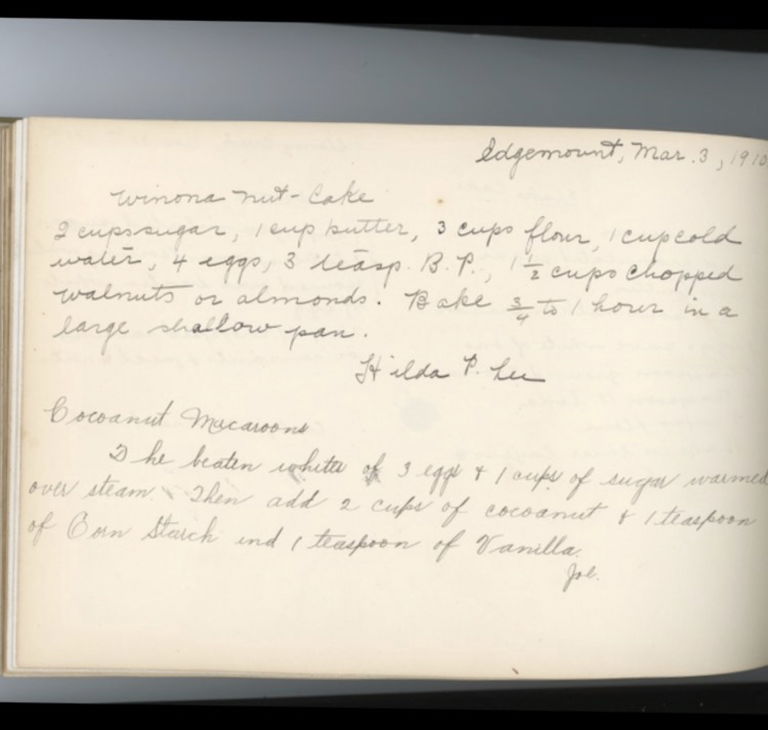 Edgemount, Mar. 3, 1910
Winona Nut-Cake
2 cups sugar, 1 cup butter, 3 cups flour, 1 cup cold
water, 4 eggs, 3 teasp. B. P., 1 1/2 cups chopped
walnuts or almonds. Bake 3/4 to 1 hour in a
large shallow pan.
Hilda P. Lee
Cocoanut Macaroons
The beaten whites of 3 eggs & 1 cups of sugar warmed
over steam. Then add 2 cups of cocoanut & 1 teaspoon
of Corn Starch and 1 teaspoon of Vanilla.
Joe.